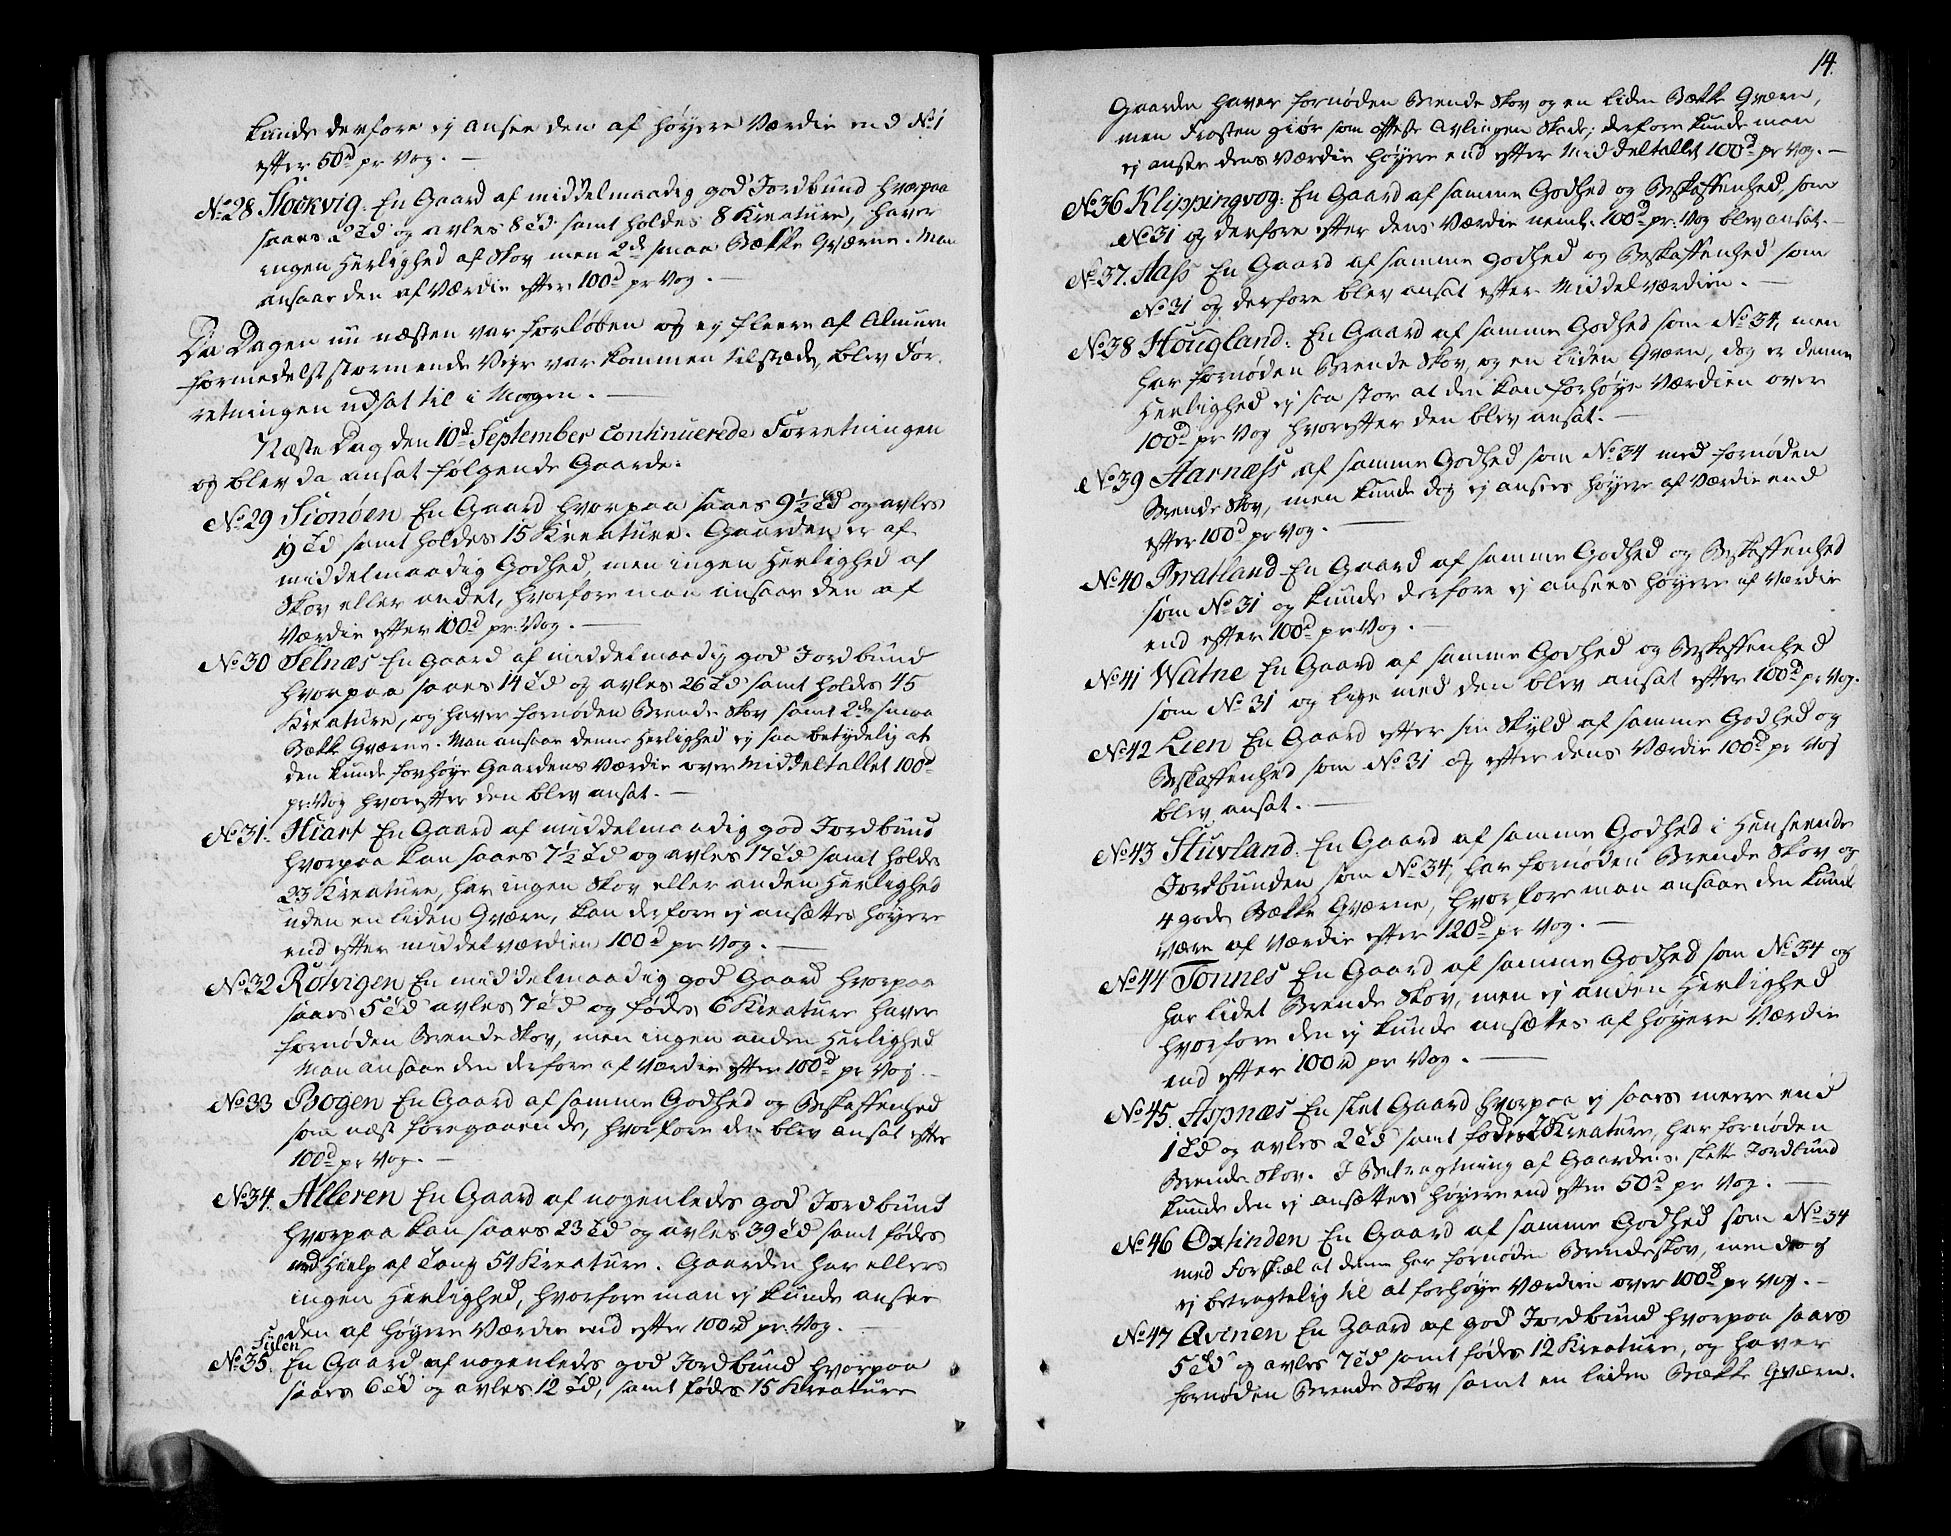 kunde derfore ej ansee den af høyere Værdie end No. 1
efter 50d pr Vog. —
No. 28 Stockvig. En Gaard af middelmaadig god Jordbund hvorpaa
saaes 2 Td og avles 8 Td samt holdes 8 Kreature, haver
ingen Herlighed af Skov men 2de smaa Bække Qværne. Man
ansaae den af Værdie efter 100d pr Vog. —
Da Dagen nu næsten var forløben og ej fleere af Almuen
formedelst stormende Vejr var kommen tilstæde, blev For-
retningen udsat til i Morgen. —
Næste Dag den 10d September Continuerede Forretningen
og blev da ansat følgende Gaarde.
No. 29 Sionøen En Gaard hvorpaa saaes 9½ Td og avles
19 Td samt holdes 15 Kreature. Gaarden er af
middelmaadig Godhed, men ingen Herlighed af
Skov eller andet, hvorfore man ansaae den af
Værdie efter 100d pr. Vog. —
No. 30 Selnæs En Gaard af middelmaadig god Jordbund
hvorpaa saaes 14 Td og avles 26 Td samt holdes 45
Kreature, og haver fornøden Brende Skov samt 2de smaa
Bække Qværne. Man ansaae denne Herlighed ej saa betydelig at
den kunde forhøye Gaardens Værdie over Middeltallet 100d
pr. Vog hvorefter den blev ansat. —
No. 31. Hiart En Gaard af middelmaadig god Jordbund
hvorpaa kan saaes 7½ Td og avles 17 Td samt holdes
23 Kreature, har ingen Skov eller anden Herlighed
uden en liden Qværn, kan derfore ej ansættes høyere
end efter middelværdien 100d pr Vog. —
No. 32 Rötvigen En middelmaadig god Gaard hvorpaa
saaes 5 Td avles 7 Td og fødes 6 Kreature haver
fornøden Brende Skov, men ingen anden Herlighed
Man ansaae den derfore af Værdie efter 100d pr Vog. —
No. 33 Bogen En Gaard af samme Godhed og Beskaffenhed
som næst foregaaende, hvorfore den blev ansat efter
100d pr Vog. —
No. 34. Alleren En Gaard af nogenledes god Jordbund
hvorpaa kan saaes 23 Td og avles 39 Td samt fødes
ved Hielp af Tang 54 Kreature. Gaarden har ellers
ingen Herlighed, hvorfore man ej kunde ansee
den af høyere Værdie end efter 100d pr. Vog. —
Silen
No. 35. En Gaard af nogenledes god Jordbund hvorpaa
saaes 6 Td og avles 12 Td, samt fødes 15 Kreature
14.
Gaarden haver fornøden Brende Skov og en liden Bække Qværn,
men Frosten giør som oftest Avlingen Skade; derfore kunde man
ej ansee dens Værdie høyere end efter Middeltallet 100d pr Vog. —
No. 36 Klippingvog: En Gaard af samme Godhed og Beskaffenhed, som
No. 31 og derfore efter dens Værdie neml. 100d pr. Vog blev ansat. —
No. 37. Aass En Gaard af samme godhed og Beskaffenhed som
No. 31 og derfore blev ansat efter Middelværdien. —
No. 38 Hougland. En Gaard af samme Godhed som No. 34, men
har fornøden Brende Skov, og en liden Qværn, dog er denne
Herlighed ej saa stor at den kan forhøye Værdien over
100d pr Vog hvorefter den blev ansat. —
No. 39 Aarnæss af samme Godhed som No. 34 med fornøden
Brende Skov, men kunde dog ej ansees høyere af Værdie end
efter 100d pr Vog. —
No. 40 Bratland En Gaard af samme Godhed og Beskaffenhed
som No. 31 og kunde derfore ej ansees høyere af Værdie
end efter 100d pr Vog. —
No. 41 Watne En Gaard af samme Godhed og Beskaffenhed
som No. 31 og lige med den blev ansat efter 100d pr Vog.
No. 42 Lien En Gaard efter sin Skyld af samme Godhed og
Beskaffenhed som No. 31 og efter dens Værdie 100d pr Vog
blev ansat. —
No. 43 Stuvland. En Gaard af samme Godhed i Henseende
Jordbunden som No. 34, har fornøden Brende Skov og
4 gode Bække Qværne, hvorfore man ansaae den kunde
være af Værdie efter 120d pr Vog. —
No. 44 Tonnes En Gaard af samme Godhed som No. 34 og
har lidet Brende Skov, men ej anden Herlighed
hvorfore den ej kunde ansættes af høyere Værdie
end efter 100d pr Vog. —
No. 45. Aspnæs En slet Gaard hvorpaa ej saaes meere end
1 Td og avles 2 Td samt fødes 2 Kreature, har fornøden
Brende Skov. I Betragtning af Gaardens slette Jordbund
kunde den ej ansættes høyere end efter 50d pr Vog. —
No. 46 Oxtinden En Gaard af samme Godhed som No. 34
med Forskiæl at denne har fornøden Brendeskov, men dog
ej betragtelig til at forhøye Værdien over 100d pr Vog. —
No. 47 Qvinen En Gaard af god Jordbund hvorpaa saaes
5 Td og avles 7 Td samt fødes 12 Kreature, og haver
fornøden Brende Skov samt en liden Bække Qværn.